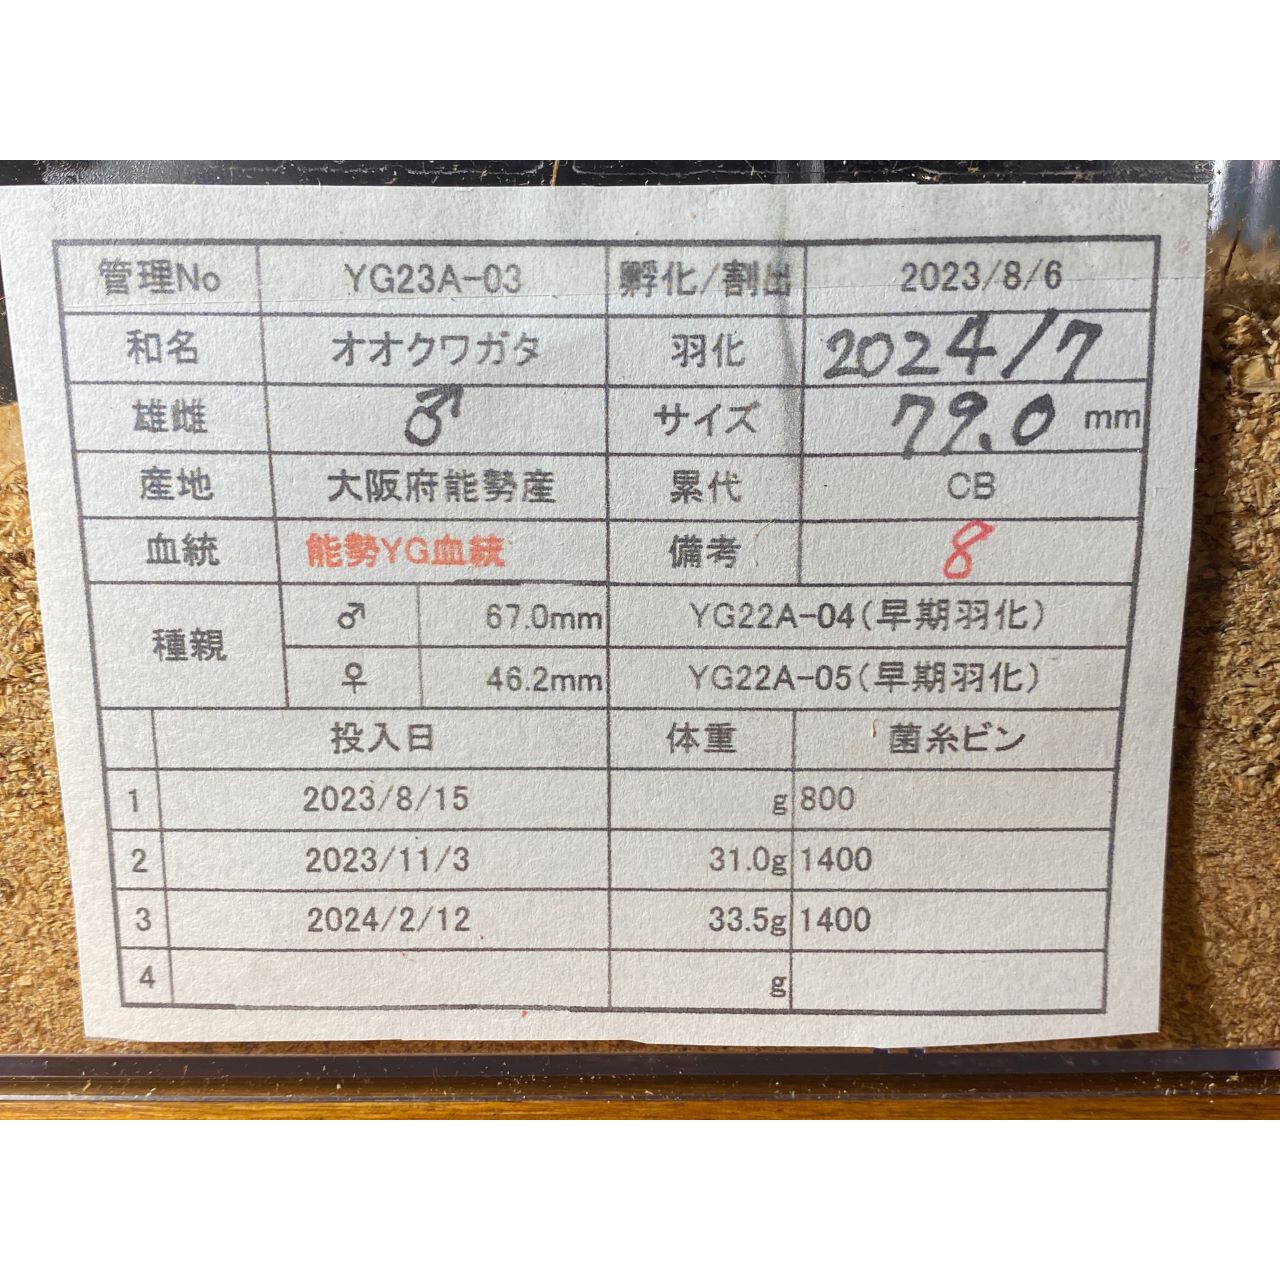 管理No YG23A-03 孵化/割出 2023/8/6
和名 オオクワガタ 羽化 2024/7
雄雌 ♂ サイズ 79.0 mm
産地 大阪府能勢産 累代 CB
血統 能勢YG血統 備考 8
種親 ♂ 67.0mm YG22A-04(早期羽化)
♀ 46.2mm YG22A-05(早期羽化)
投入日 体重 菌糸ビン
1 2023/8/15 g 800
2 2023/11/3 31.0g 1400
3 2024/2/12 33.5g 1400
4 g